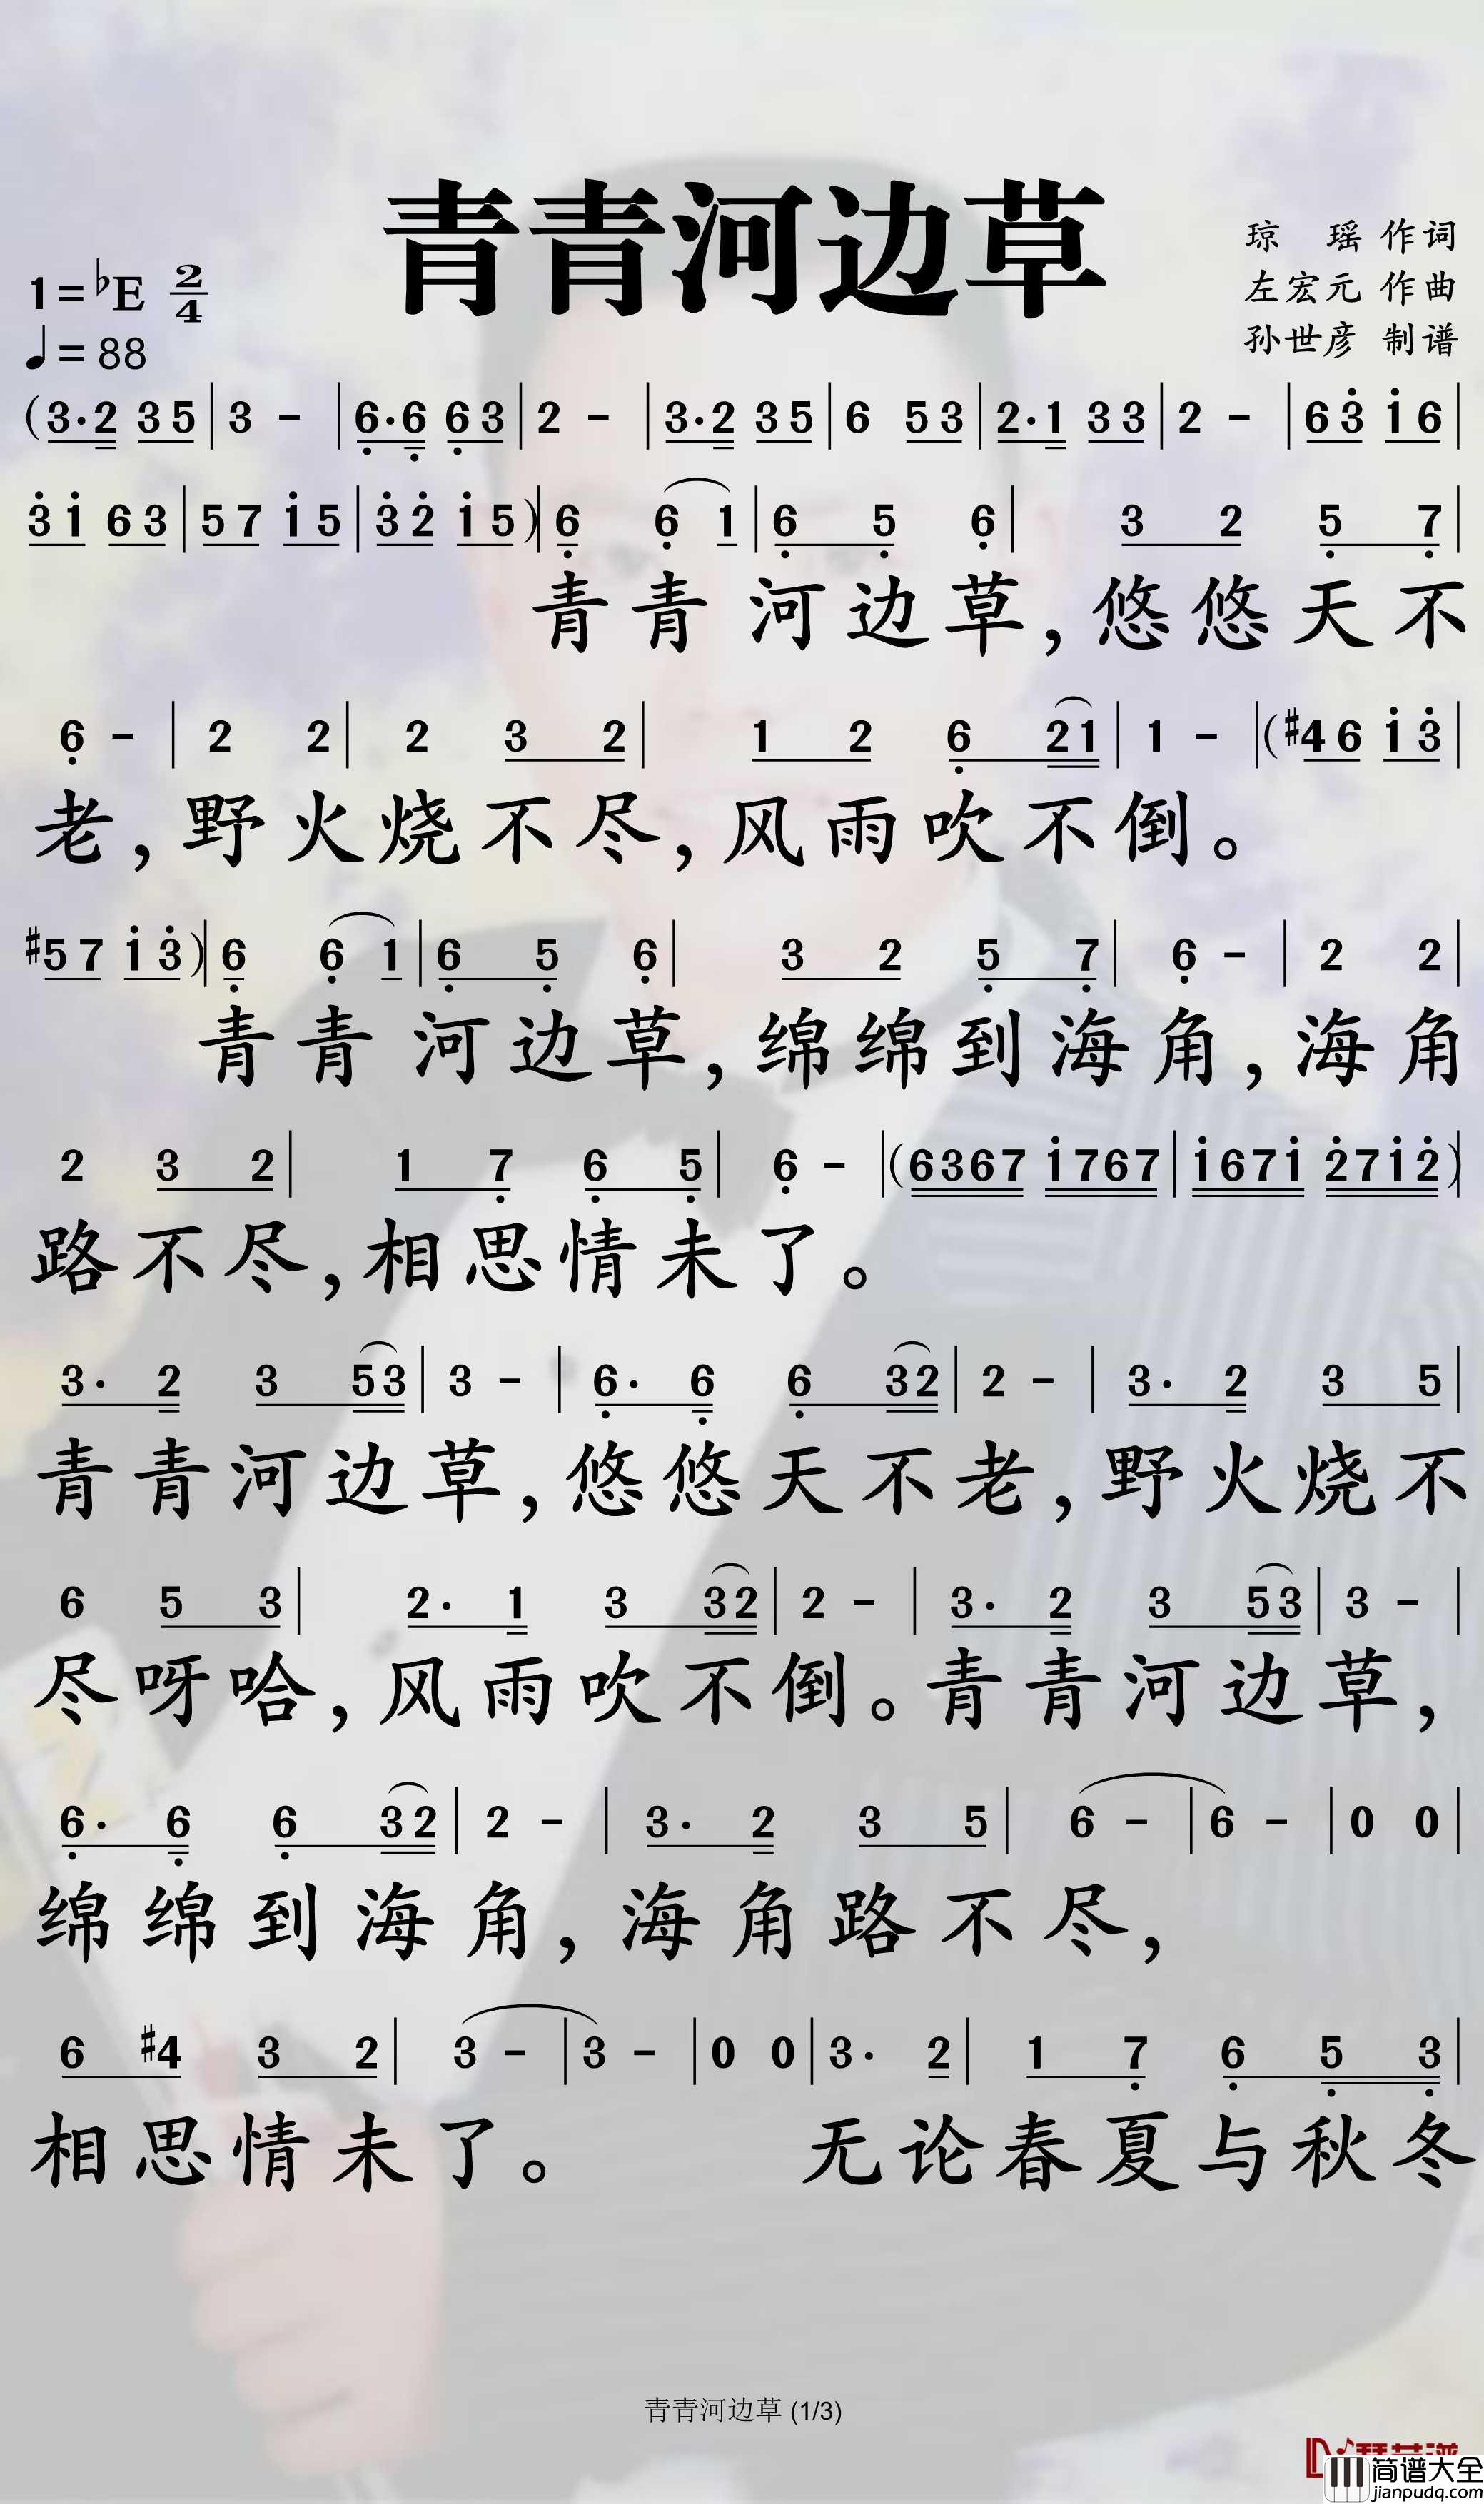 青青河边草
琼 瑶 作词
左宏元 作曲
孙世彦 制谱
1=♭E 2/4
♩=88
(3·2 35|3 -|6̣·6̣ 6̣3|2 -|3·2 35|6 53|2·1 33|2 -|63̇ 1̇6|
3̇1̇ 63|57 1̇5|3̇2̇ 1̇5)|6̣ 6̣ 1|6̣ 5̣ 6̣|3 2 5̣ 7̣|
青青河边草,悠悠天不
6̣ -|2 2|2 3 2|1 2 6̣ 21|1 -|(#46 1̇3̇|
老,野火烧不尽,风雨吹不倒。
#57 1̇3̇)|6̣ 6̣ 1|6̣ 5̣ 6̣|3 2 5̣ 7̣|6̣ -|2 2|
青青河边草,绵绵到海角,海角
2 3 2|1 7̣ 6̣ 5̣|6̣ -|(6367 1̇767|1̇671̇ 2̇71̇2̇)|
路不尽,相思情未了。
3· 2 3 53|3 -|6̣· 6̣ 6̣ 32|2 -|3· 2 3 5|
青青河边草,悠悠天不老,野火烧不
6 5 3|2· 1 3 32|2 -|3· 2 3 53|3 -|
尽呀哈,风雨吹不倒。青青河边草,
6̣· 6̣ 6̣ 32|2 -|3· 2 3 5|6 -|6 -|0 0|
绵绵到海角,海角路不尽,
6 #4 3 2|3 -|3 -|0 0|3· 2|1 7̣ 6̣ 5̣ 3̣|
相思情未了。 无论春夏与秋冬
青青河边草 (1/3)
简谱大全
jianpudq.com